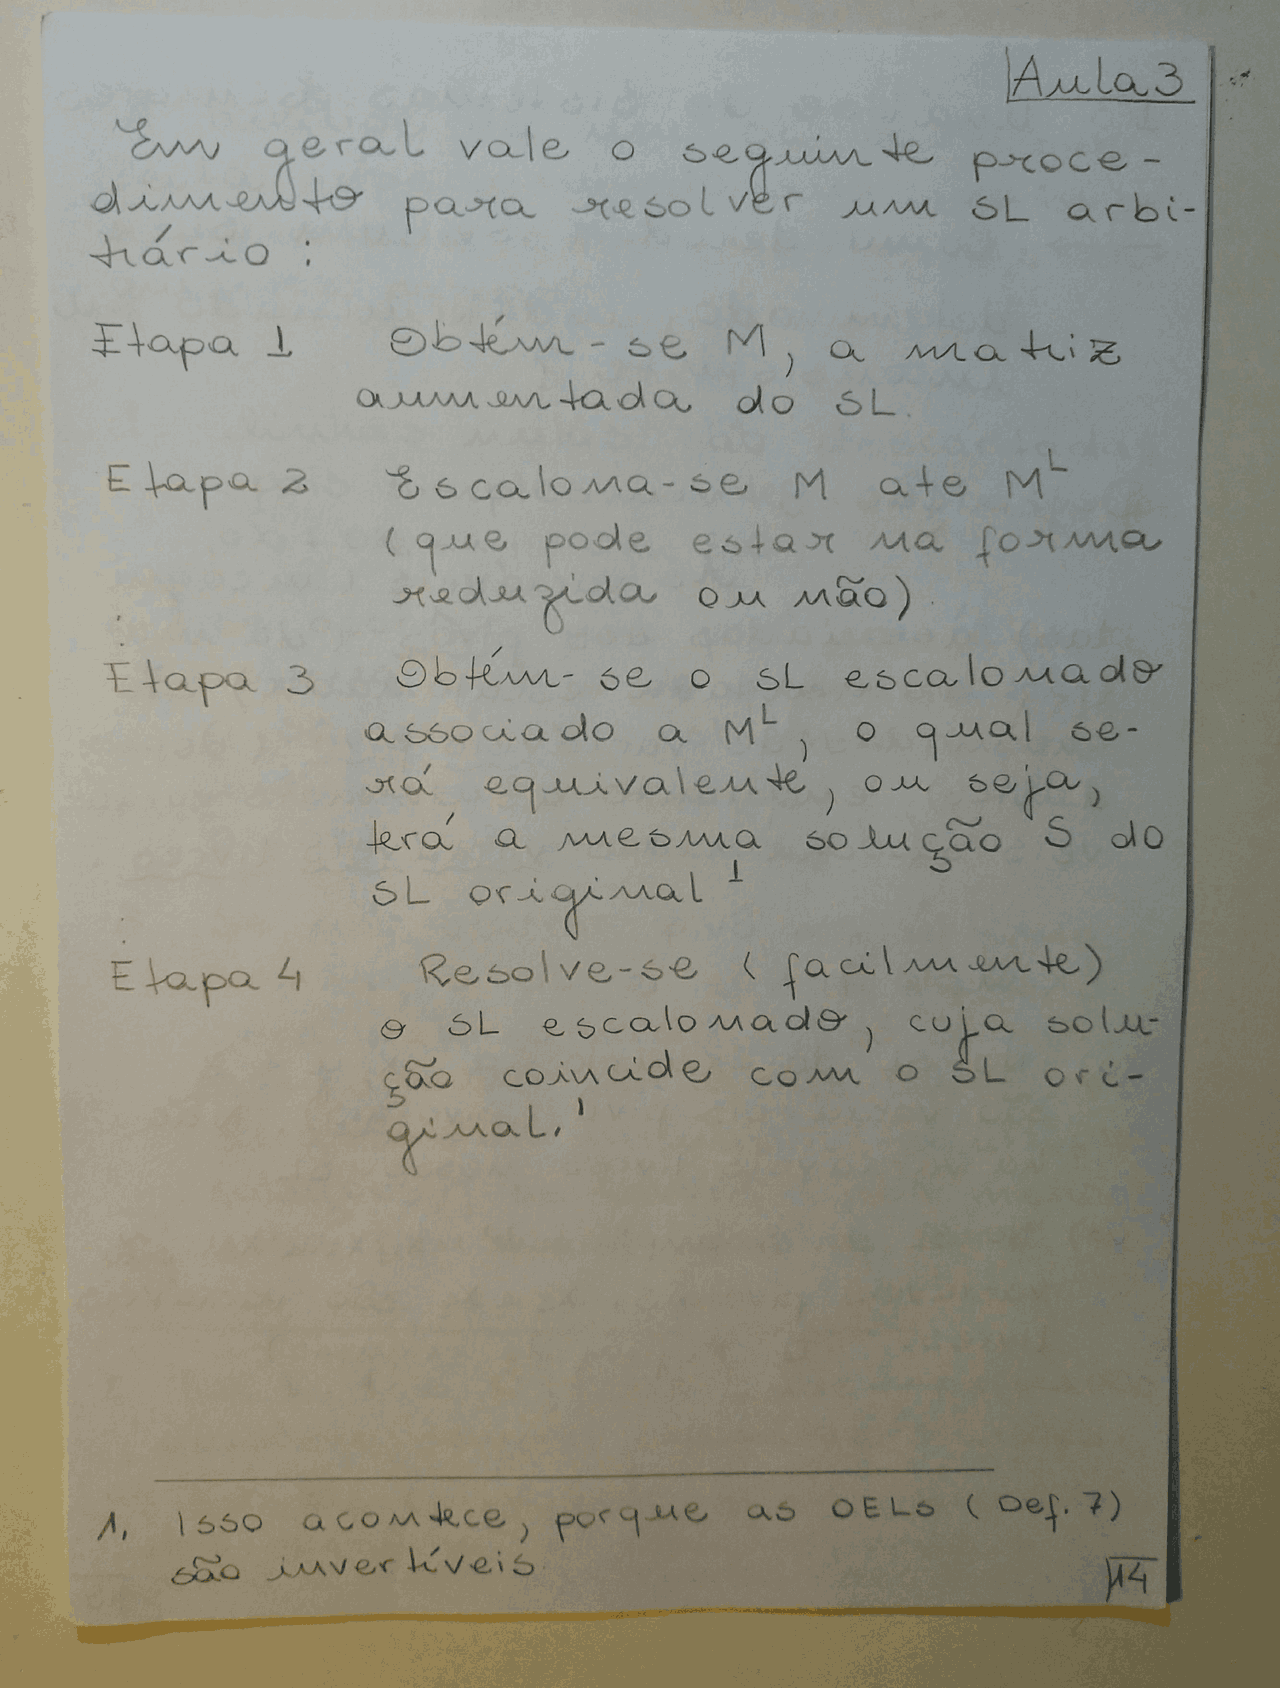 Aula 3
Em geral vale o seguinte proce-
dimento para resolver um SL arbi-
trário :
Etapa 1 Obtém-se M, a matriz
aumentada do SL.
Etapa 2 Escalona-se M ate M^L
(que pode estar na forma
reduzida ou não).
Etapa 3 Obtém-se o SL escalonado
associado a M^L, o qual se-
rá equivalente, ou seja,
terá a mesma solução S do
SL original ¹
Etapa 4 Resolve-se (facilmente)
o SL escalonado, cuja solu-
ção coincide com o SL ori-
ginal.¹
1. Isso acontece, porque as OELs (Def. 7)
são invertíveis
14